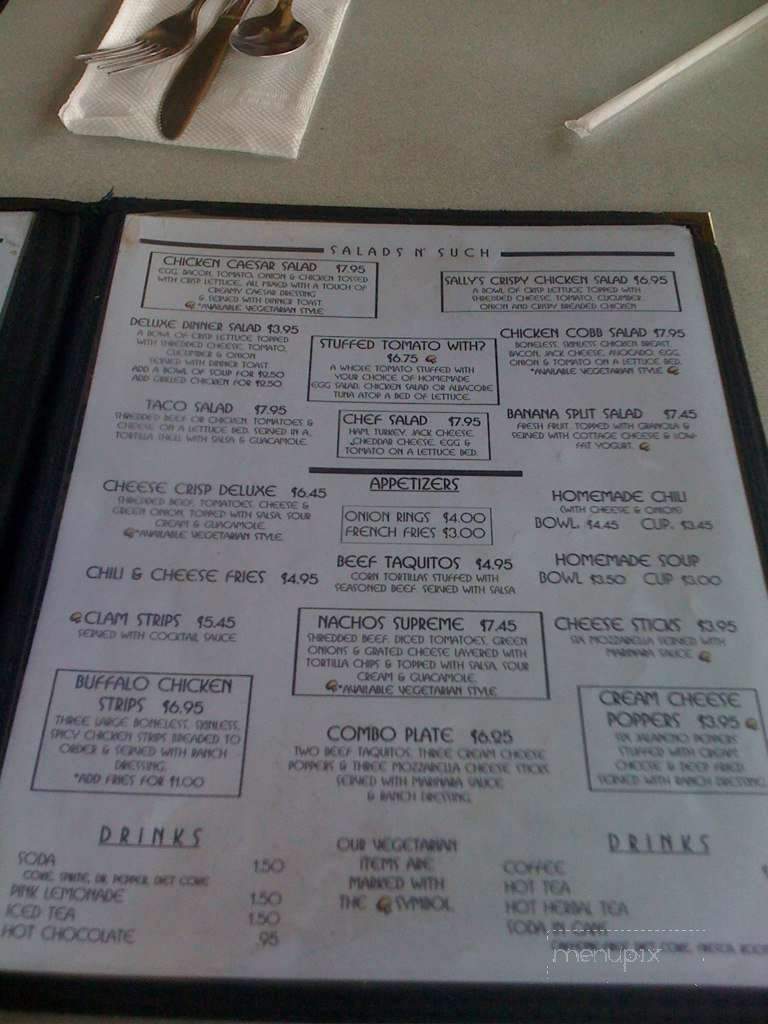 SALADS N' SUCH
CHICKEN CAESAR SALAD $7.95
EGG, BACON, TOMATO, ONION & CHICKEN TOSSED
WITH CRISP LETTUCE, ALL MIXED WITH A TOUCH OF
CREAMY CAESAR DRESSING
& SERVED WITH DINNER TOAST
*AVAILABLE VEGETARIAN STYLE
SALLY'S CRISPY CHICKEN SALAD $6.95
A BOWL OF CRISP LETTUCE TOPPED WITH
SHREDDED CHEESE, TOMATO, CUCUMBER,
ONION AND CRISPY BREADED CHICKEN
DELUXE DINNER SALAD $3.95
A BOWL OF CRISP LETTUCE TOPPED
WITH SHREDDED CHEESE, TOMATO,
CUCUMBER & ONION
SERVED WITH DINNER TOAST
ADD A BOWL OF SOUP FOR $2.50
ADD GRILLED CHICKEN FOR $2.50
STUFFED TOMATO WITH?
$6.75
A WHOLE TOMATO STUFFED WITH
YOUR CHOICE OF HOMEMADE
EGG SALAD, CHICKEN SALAD OR ALBACORE
TUNA ATOP A BED OF LETTUCE.
CHICKEN COBB SALAD $7.95
BONELESS, SKINLESS CHICKEN BREAST,
BACON, JACK CHEESE, AVOCADO, EGG,
ONION & TOMATO ON A LETTUCE BED.
*AVAILABLE VEGETARIAN STYLE
TACO SALAD $7.95
SHREDDED BEEF OR CHICKEN, TOMATOES &
CHEESE, ON A LETTUCE BED, SERVED IN A
TORTILLA SHELL WITH SALSA & GUACAMOLE.
CHEF SALAD $7.95
HAM, TURKEY, JACK CHEESE,
CHEDDAR CHEESE, EGG &
TOMATO ON A LETTUCE BED.
BANANA SPLIT SALAD $7.45
FRESH FRUIT, TOPPED WITH GRANOLA &
SERVED WITH COTTAGE CHEESE & LOW-
FAT YOGURT.
APPETIZERS
CHEESE CRISP DELUXE $6.45
SHREDDED BEEF, TOMATOES, CHEESE &
GREEN ONION, TOPPED WITH SALSA, SOUR
CREAM & GUACAMOLE.
*AVAILABLE VEGETARIAN STYLE
ONION RINGS $4.00
FRENCH FRIES $3.00
HOMEMADE CHILI
(WITH CHEESE & ONION)
BOWL $4.45 CUP $3.45
CHILI & CHEESE FRIES $4.95
BEEF TAQUITOS $4.95
CORN TORTILLAS STUFFED WITH
SEASONED BEEF, SERVED WITH SALSA
HOMEMADE SOUP
BOWL $3.50 CUP $3.00
CLAM STRIPS $5.45
SERVED WITH COCKTAIL SAUCE
NACHOS SUPREME $7.45
SHREDDED BEEF, DICED TOMATOES, GREEN
ONIONS & GRATED CHEESE LAYERED WITH
TORTILLA CHIPS & TOPPED WITH SALSA, SOUR
CREAM & GUACAMOLE.
*AVAILABLE VEGETARIAN STYLE
CHEESE STICKS $3.95
SIX MOZZARELLA SERVED WITH
MARINARA SAUCE
BUFFALO CHICKEN
STRIPS $6.95
THREE LARGE BONELESS, SKINLESS,
SPICY CHICKEN STRIPS BREADED TO
ORDER & SERVED WITH RANCH
DRESSING.
*ADD FRIES FOR $1.00
COMBO PLATE $6.25
TWO BEEF TAQUITOS, THREE CREAM CHEESE
POPPERS & THREE MOZZARELLA CHEESE STICKS
SERVED WITH MARINARA SAUCE
& RANCH DRESSING.
CREAM CHEESE
POPPERS $3.95
SIX JALAPENO PEPPERS
STUFFED WITH CREAM
CHEESE & DEEP FRIED.
SERVED WITH RANCH DRESSING
DRINKS
SODA 1.50
COKE, SPRITE, DR. PEPPER, DIET COKE
PINK LEMONADE 1.50
ICED TEA 1.50
HOT CHOCOLATE .95
OUR VEGETARIAN
ITEMS ARE
MARKED WITH
THE SYMBOL
DRINKS
COFFEE
HOT TEA
HOT HERBAL TEA
SODA
menupix